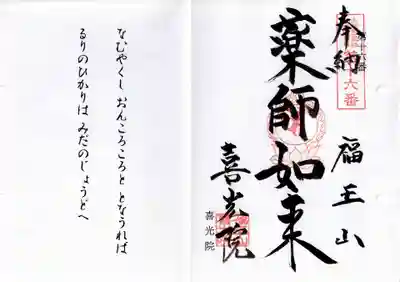 奉納
福王山
薬師如来
喜光院
喜光院
なむやくし おんころころと となうれば
るりのひかりは みだのじょうどへ